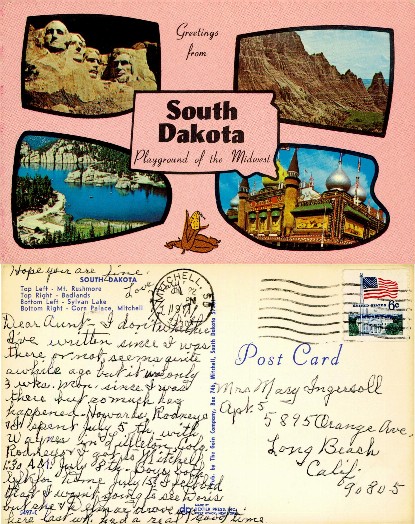 Greetings
from
South
Dakota
Playground of the Midwest
Hope you are fine.
Love
SOUTH DAKOTA
Top Left - Mt. Rushmore
Top Right - Badlands
Bottom Left - Sylvan Lake
Bottom Right - Corn Palace, Mitchell
MITCHELL,
PM
1971
UNITED STATES
6c
Dear Aunt - I don't know if
I've written since I was
there or not, seems quite
awhile ago but it was only
3 wks. Mon. since I was
there but so much has
happened. Howards, Rodneys
& I spent July 5th with
Waynes in Littleton Colo.
Rodneys & I got to Mitchell
1:30 AM July 8th. Boys both
left for home July 15. I
that I went to see Doris
but she & Elmer drove
here last wk. Had a real good time
Post Card
Mrs Mary Ingersoll
Apt 5
5895 Orange Ave.
Long Beach
Calif.
90805
Pub. by The Dain Company, Box 746, Mitchell, South Dakota
MADE BY
DEXTER PRESS, INC.